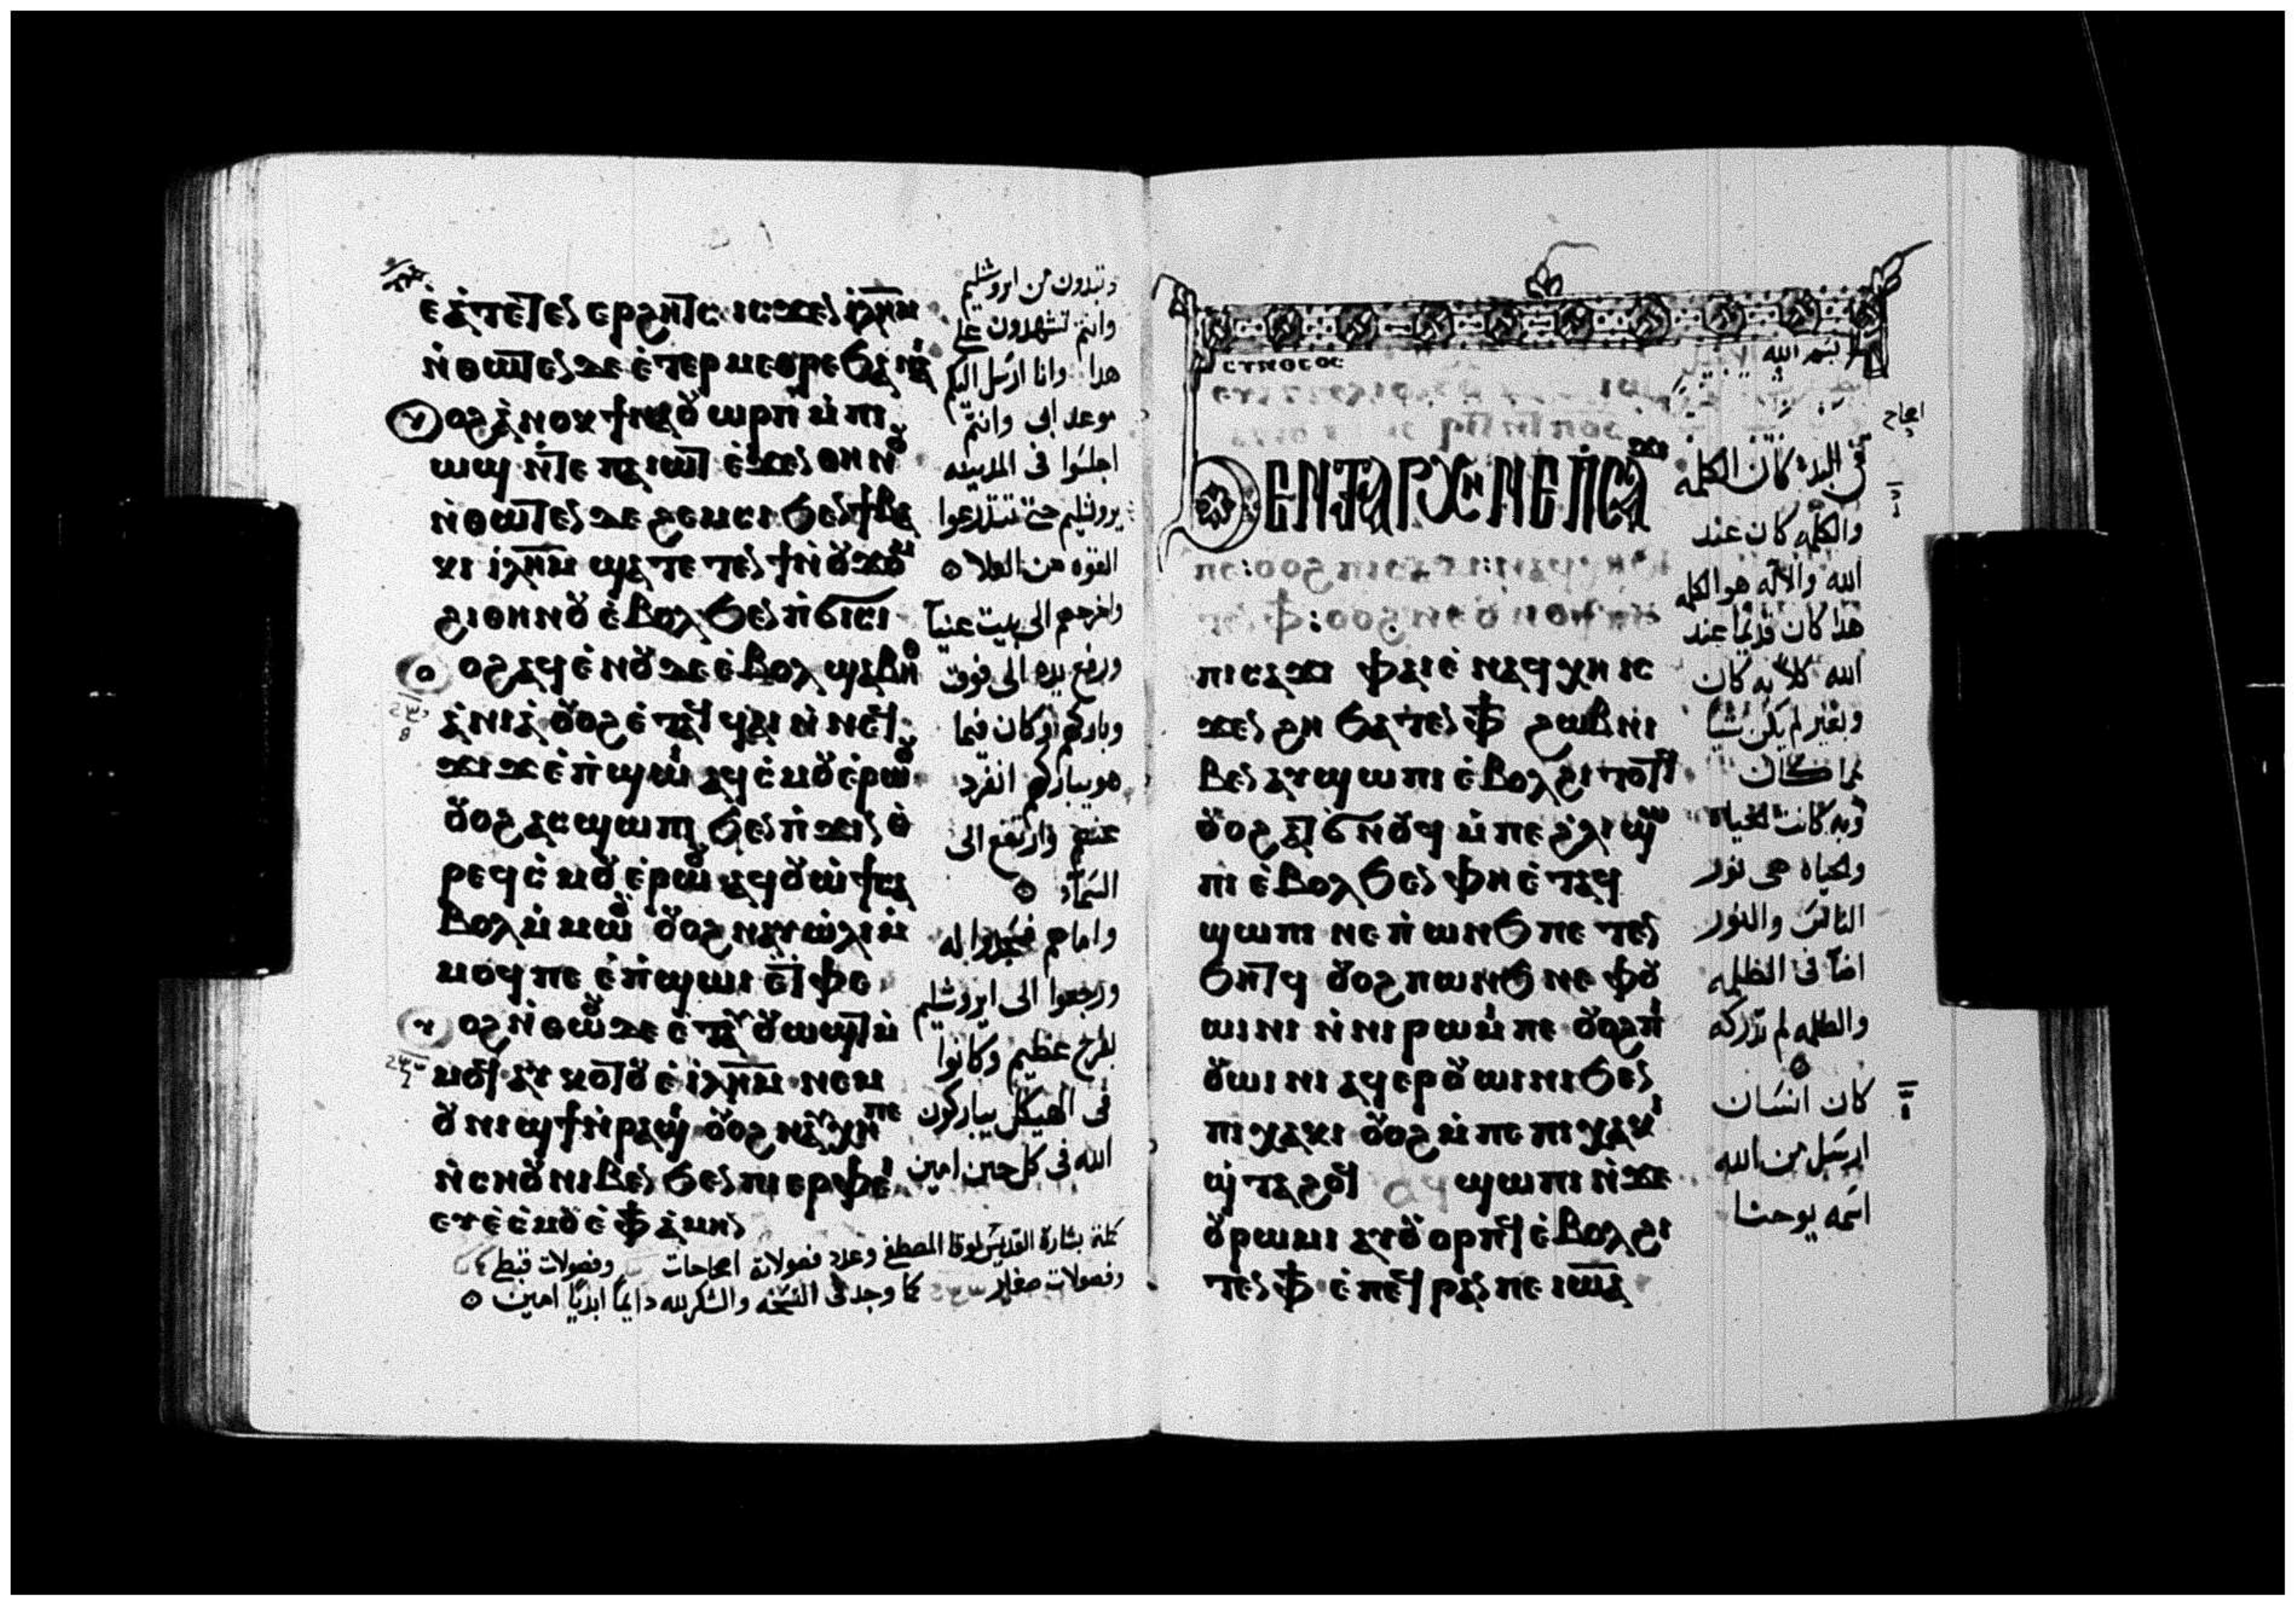 ⲉ̀ⲁ̀ⲣⲉⲧⲉⲛⲉⲣϩⲏⲧⲥ ⲓⲥϫⲉⲛ ⲓⲗⲏⲙ
ⲛ̀ⲑⲱⲧⲉⲛ ⲇⲉ ⲉ̀ⲧⲉⲣⲙⲉⲑⲣⲉ ϧⲁ ⲛⲁⲓ
ⲟϩ ⲁ̀ⲛⲟⲕ ϯⲛⲁⲟⲩⲱⲣⲡ ⲙ̀ⲡⲓ
ⲱϣ ⲛ̀ⲧⲉ ⲡⲁⲓⲱⲧ ⲉ̀ϫⲉⲛ ⲑⲏⲛⲟⲩ
ⲛ̀ⲑⲱⲧⲉⲛ ⲇⲉ ϩⲉⲙⲥⲓ ϧⲉⲛ ϯⲃⲁ
ⲕⲓ ⲓⲗⲏⲙ ϣⲁⲧⲉⲧⲉⲛϯ ⲛ̀ⲟⲩϫⲟⲙ
ϩⲓⲑⲏⲛⲟⲩ ⲉ̀ⲃⲟⲗ ϧⲉⲛ ⲡ̀ϭⲓⲥⲓ
ⲟϩ ⲁϥⲉ̀ⲛⲟⲩ ⲇⲉ ⲉ̀ⲃⲟⲗ ϣⲁ ⲃⲏⲑ
ⲁ̀ⲛⲓⲁ̀ ⲟⲩⲟϩ ⲉ̀ⲧⲁϥϥⲁⲓ ⲛ̀ⲛⲉϥ
ϫⲓϫ ⲉ̀ⲡ̀ϣⲱⲓ ⲁϥⲥ̀ⲙⲟⲩ ⲉ̀ⲣⲱⲟⲩ
ⲟⲩⲟϩ ⲁⲥϣⲱⲡⲓ ϧⲉⲛ ⲡ̀ϫⲓⲛⲑ
ⲣⲉϥⲥ̀ⲙⲟⲩ ⲉ̀ⲣⲱⲟⲩ ⲁϥⲟⲩⲱ̀ϯ ⲥⲁ
ⲃⲟⲗ ⲙ̀ⲙⲱⲟⲩ ⲟⲩⲟϩ ⲛⲁⲩⲱ̀ⲗⲓ ⲙ̀
ⲙⲟϥ ⲡⲉ ⲉ̀ⲡ̀ϣⲱⲓ ⲉⲧⲫⲉ
ⲟϩ ⲛ̀ⲑⲱⲟⲩ ⲇⲉ ⲉ̀ⲧⲁⲩⲟⲩⲱϣⲧ ⲙ̀
ⲙⲟϥ ⲁⲩⲕⲟⲧⲟⲩ ⲉ̀ ⲓⲗⲏⲙ ⲛⲉⲙ
ⲟⲩⲛⲓϣϯ ⲛ̀ⲣⲁϣⲓ ⲟⲩⲟϩ ⲛⲁⲩⲭⲏ ⲡⲉ
ⲛ̀ⲥⲏⲟⲩ ⲛⲓⲃⲉⲛ ϧⲉⲛ ⲡⲓⲉⲣⲫⲉⲓ
ⲉⲩⲉ̀ⲥ̀ⲙⲟⲩ ⲉ̀ⲫϯ ⲁ̀ⲙⲏⲛ
وتبدون من ايروشليم
وانتم تشهدون على
هدا وانا ارسل اليكم
موعد ابى وانتم
اجلسوا فى المدينه
يروشليم حتى تتدرعوا
القوه من العلا
واخرجهم الى بيت عنيا
ورفع يده الى فوق
وباركهم وكان فيما
هو يباركهم انفرد
عنهم وارتفع الى
السماء
واماهم فسجدوا له
ورجعوا الى ايروشليم
بفرح عظيم وكانوا
فى الهيكل يباركون
الله فى كل حين امين
كملة بشارة القديس لوقا المصطفى وعدد فصولاته اصحاحات وفصولات قبطى
وفصولات صغار كما وجد فى النسخه والشكر لله دايما ابديا امين
ⲥⲩⲛⲟⲥⲟⲥ
بسم الله
ϧⲉⲛ ⲧⲁⲣⲭⲏ ⲛⲉ ⲡⲥⲁϫⲓ
ⲡⲓⲥⲁϫⲓ ⲫⲁⲓ ⲉ̀ⲛⲁϥⲭⲏ ⲓⲥ
ϫⲉⲛ ϩⲏ ϧⲁⲧⲉⲛ ⲫϯ ϩⲱⲃ ⲛⲓ
ⲃⲉⲛ ⲁⲩϣⲱⲡⲓ ⲉ̀ⲃⲟⲗ ϩⲓⲧⲟⲧϥ
ⲟⲩⲟϩ ⲁⲧϭⲛⲟⲩϥ ⲙ̀ⲡⲉ ϩ̀ⲗⲓ ϣⲱ
ⲡⲓ ⲉ̀ⲃⲟⲗ ϧⲉⲛ ⲫⲏⲉ̀ⲧⲁϥ
ϣⲱⲡⲓ ⲛⲉ ⲡ̀ⲱⲛϧ ⲡⲉ ⲧⲉⲛ
ϧⲏⲧϥ ⲟⲩⲟϩ ⲡⲱⲛϧ ⲛⲉ ⲫⲟⲩ
ⲱⲓⲛⲓ ⲛ̀ⲛⲓⲣⲱⲙⲓ ⲡⲉ ⲟⲩⲟϩ ⲡⲓ
ⲟⲩⲱⲓⲛⲓ ⲁϥⲉⲣⲟⲩⲱⲓⲛⲓ ϧⲉⲛ
ⲡⲓⲭⲁⲕⲓ ⲟⲩⲟϩ ⲙ̀ⲡⲉ ⲡⲓⲭⲁⲕⲓ
ϣ̀ⲧⲁϩⲟϥ ϣⲱⲡⲓ ⲛ̀ϫⲉ
ⲟⲩⲣⲱⲙⲓ ⲁⲩⲟⲩⲟⲣⲡϥ ⲉ̀ⲃⲟⲗ ϩⲓ
ⲧⲉⲛ ⲫϯ ⲉ̀ⲡⲉϥⲣⲁⲛ ⲡⲉ ⲓⲱⲁ
اصحاح
فى البدء كان الكلمه
والكلمه كان عند
الله والاله هو الكلمه
هذا كان قديما عند
الله كلا به كان
وبغير لم يكن شيا
مما كان
وبه كانت الحياه
والحياه هى نور
الناس والنور
اضا فى الظلمه
والظلمه لم تدركه
كان انسان
ارسل من الله
اسمه يوحنا